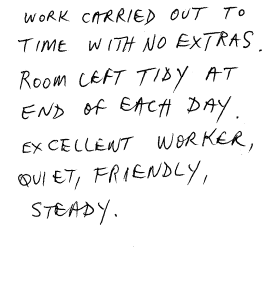 WORK CARRIED OUT TO
TIME WITH NO EXTRAS.
ROOM LEFT TIDY AT
END OF EACH DAY.
EXCELLENT WORKER,
QUIET, FRIENDLY,
STEADY.